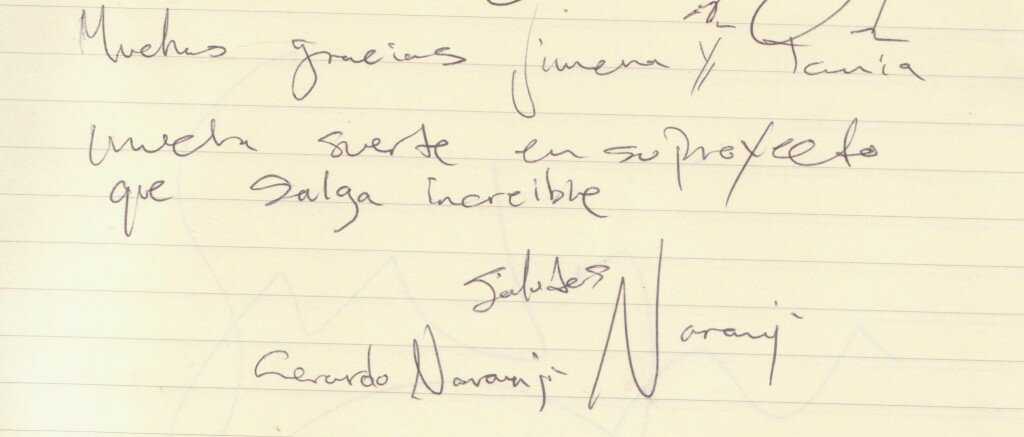 Muchas gracias Jimena y Tania
mucha suerte en su proyecto
que salga increible
Saludos
Naranj
Gerardo Naranjo